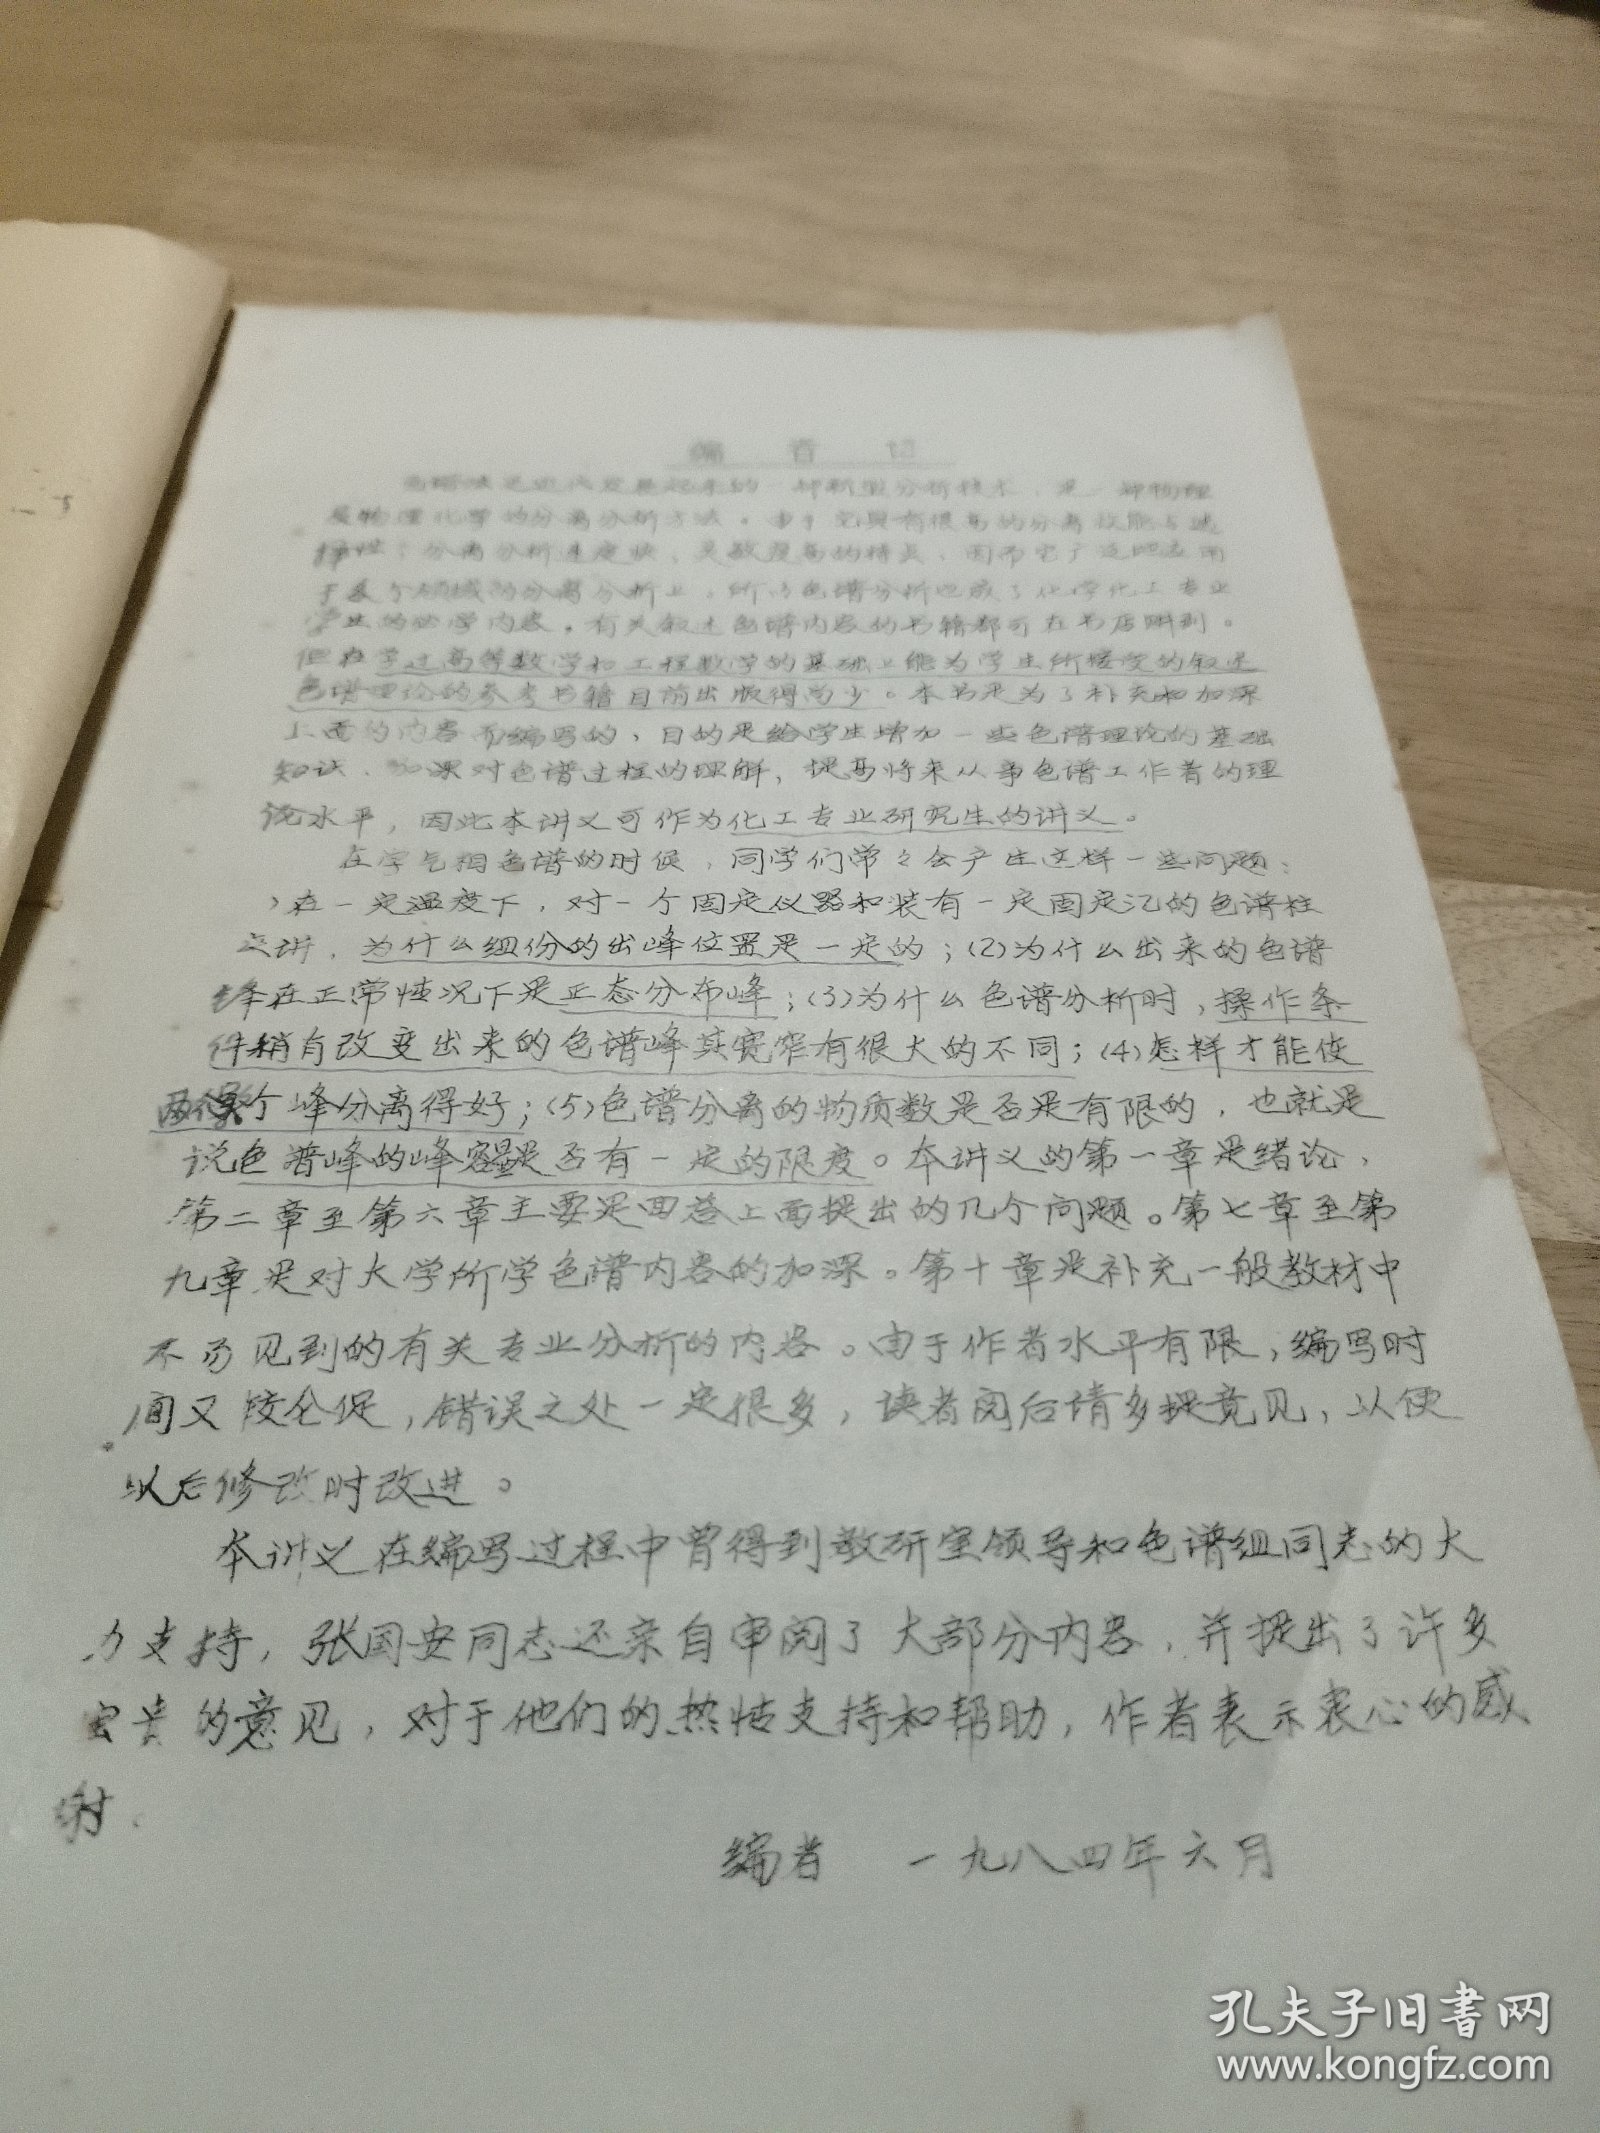 编者记
色谱法是近代发展起来的一种新型分析技术，是一种物理
及物理化学的分离分析方法。由于它具有很高的分离效能与选
择性，分离分析速度快、灵敏度高的特点，因而它广泛地应用
于各个领域的分离分析上，所以色谱分析也成了化学化工专业
学生的必学内容。有关叙述色谱内容的书籍都可在书店购到。
但在学过高等数学和工程数学的基础上能为学生所接受的叙述
色谱理论的参考书籍目前出版得尚少。本书是为了补充和加深
上面的内容而编写的，目的是给学生增加一些色谱理论的基础
知识，加深对色谱过程的理解，提高将来从事色谱工作者的理
论水平，因此本讲义可作为化工专业研究生的讲义。
在学气相色谱的时候，同学们常々会产生这样一些问题：
)在一定温度下，对一个固定仪器和装有一定固定氾的色谱柱
来讲，为什么组份的出峰位置是一定的；(2)为什么出来的色谱
峰在正常情况下是正态分布峰；(3)为什么色谱分析时，操作条
件稍有改变出来的色谱峰其宽窄有很大的不同；(4)怎样才能使
两个峰分离得好；(5)色谱分离的物质数是否是有限的，也就是
说色谱峰的峰容量是否有一定的限度。本讲义的第一章是绪论，
第二章至第六章主要是回答上面提出的几个问题。第七章至第
九章是对大学所学色谱内容的加深。第十章是补充一般教材中
不易见到的有关专业分析的内容。由于作者水平有限，编写时
间又较仓促，错误之处一定很多，读者阅后请多提意见，以便
以后修改时改进。
本讲义在编写过程中曾得到教研室领导和色谱组同志的大
力支持，张国安同志还亲自审阅了大部分内容，并提出了许多
宝贵的意见，对于他们的热情支持和帮助，作者表示衷心的感
谢.
编者 一九八四年六月
孔夫子旧書网
www.kongfz.com